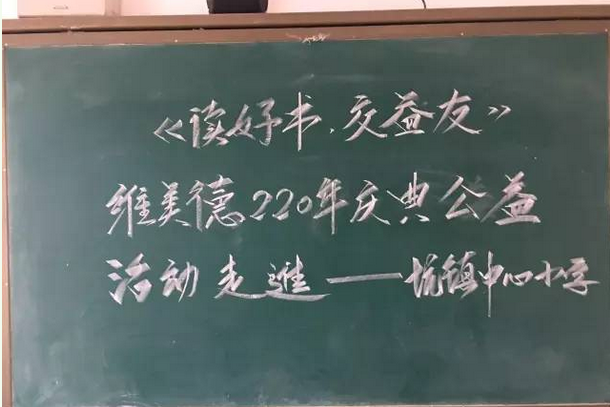 《读好书，交益友》
维美德220年庆典公益
活动走进——坑镇中心小学